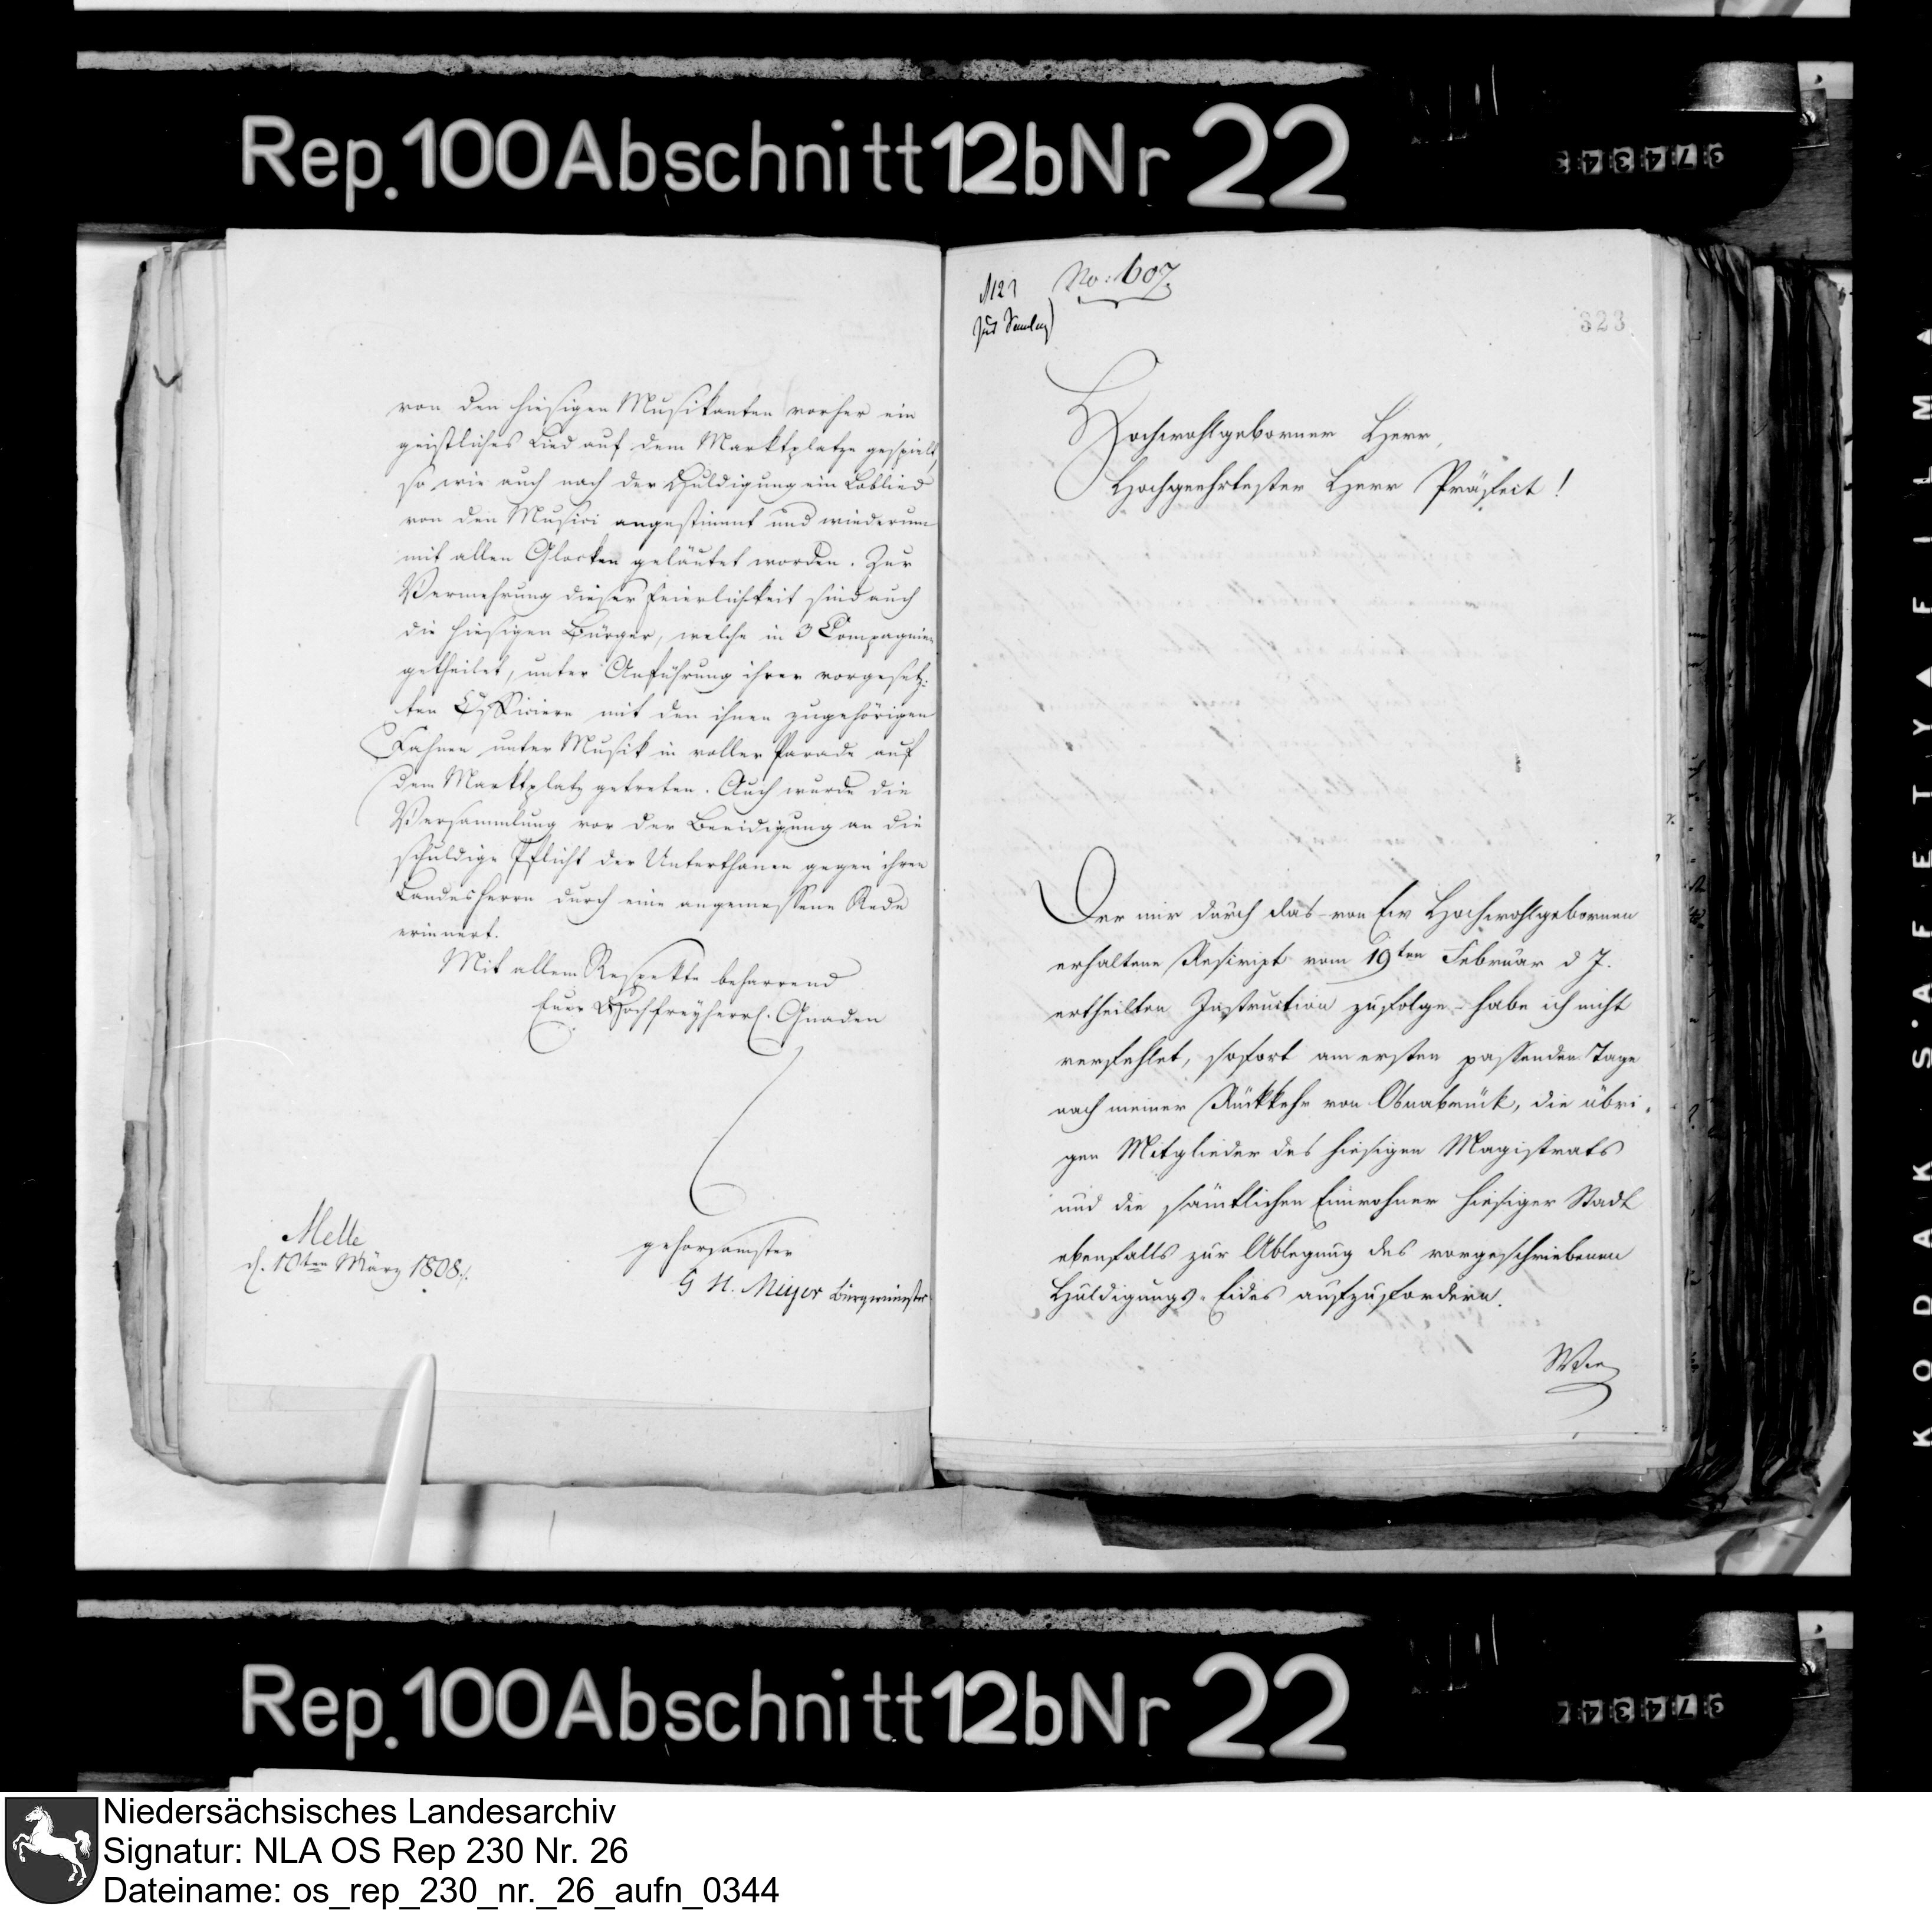 Rep. 100 Abschnitt 12b Nr 22
von den hiesigen Musikanten vorher ein
geistliches Lied auf dem Marktplatze gespielt,
so wie auch nach der Huldigung ein Loblied
von den Musici angestimmt und wiederum
mit allen Glocken geläutet worden. Zur
Vermehrung dieser Feierlichkeit sind auch
die hiesigen Bürger, welche in 3 Compagnien
getheilet, unter Anführung ihrer vorgesetz:
ten Officiere mit den ihnen zugehörigen
Fahnen unter Musik in voller Parade auf
dem Marktplatz getreten. Auch wurde die
Versammlung vor der Beeidigung an die
schuldige Pflicht der Unterthanen gegen ihren
Landesherrn durch eine angemessene Rede
erinnert.
Mit allem Respekte beharrend
Euer Hochfreyherrl. Gnaden
Melle
d. 10ten März 1808.
gehorsamster
G H. Meyer Bürgermeister
No: 607.
323
Hochwohlgeborner Herr,
Hochgeehrtester Herr Präfect!
Der mir durch das von Ew Hochwohlgebornen
erhaltene Rescript vom 19ten Februar d J.
ertheilten Instruction zufolge habe ich nicht
verfehlet, sofort am ersten passenden Tage
nach meiner Rückkehr von Osnabrück, die übri-
gen Mitglieder des hiesigen Magistrats
und die sämtlichen Einwohner hiesiger Stadt
ebenfalls zur Ablegung des vorgeschriebenen
Huldigungs-Eides aufzufordern.
KODAK S'AFETY FILM
Rep. 100 Abschnitt 12b Nr 22
Niedersächsisches Landesarchiv
Signatur: NLA OS Rep 230 Nr. 26
Dateiname: os_rep_230_nr._26_aufn_0344